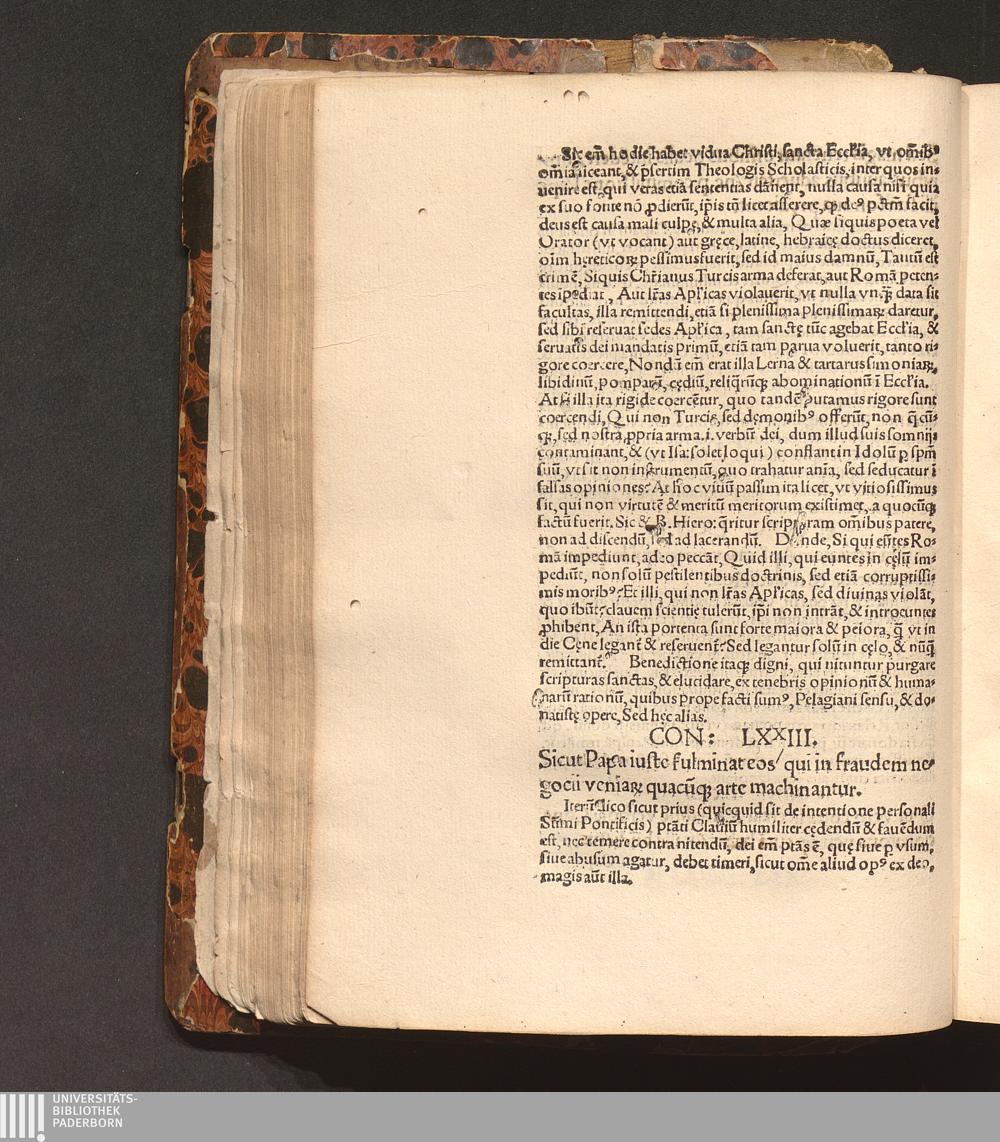 Sic em̄ hodie habet vidua Christi, sancta Eccl'ia, vt om̄ibꝰ
om̄ia liceant, & p̱sertim Theologis Scholasticis, inter quos in-
uenire est, qui veras etiā sententias dānent, nulla causa nisi quia
ex suo fonte nō ꝓdierūt, ip̄is tn̄ licet asserere, ꝙ deꝰ pctm̄ facit,
deus est causa mali culpę, & multa alia, Quæ si quis poeta vel
Orator (vt vocant) aut gręce, latine, hebraicę doctus diceret,
oīm hęreticoꝝ pessimus fuerit, sed id maius damnū, Tantū est
crimē, Siquis Chr̄ianus Turcis arma deferat, aut Romā peten-
tes īpediat, Aut lr̄as Apl'icas violauerit, vt nulla vnꝙ̄ data sit
facultas, illa remittendi, etiā si plenissima plenissimaꝝ daretur,
sed sibi reseruat sedes Apl'ica, tam sanctę tūc agebat Eccl'ia, &
seruatis dei mandatis primū, etiā tam parua voluerit, tanto ri-
gore coercere, Nondū em̄ erat illa Lerna & tartarus simoniaꝝ,
libidinū, pomparū, cędiū, reliq̄rūcꝫ abominationū ī Eccl'ia.
At si illa ita rigide coercētur, quo tandē putamus rigore sunt
coercendi, Qui non Turcis, sed dęmonibꝰ offerūt, non q̄cū-
cꝫ, sed nostra ꝓpria arma .i. verbū dei, dum illud suis somnijs
contaminant, & (vt Isa: solet loqui) conflant in Idolū p̱ sp̄m
suū, vt sit non instrumentū, quo trahatur anīa, sed seducatur ī
falsas opiniones? At hoc vitiū passim ita licet, vt vitiosissimus
sit, qui non virtutē & meritū meritorum existimet, a quocūcꝫ
factū fuerit. Sic & B. Hiero: q̄ritur scripturam om̄ibus patere,
non ad discendū, sed ad lacerandū. Deinde, Si qui eūtes Ro-
mā impediunt, adeo peccāt, Quid illi, qui euntes in cęlū im-
pediūt, non solū pestilentibus doctrinis, sed etiā corruptissi-
mis moribꝰ? Et illi, qui non lr̄as Apl'icas, sed diuinas violāt,
quo ibūt? clauem scientię tulerūt, ip̄i non intrāt, & introeuntes
ꝓhibent, An ista portenta sunt forte maiora & peiora, q̄ vt in
die Cęne legant & reseruent? Sed legantur solū in cęlo, & nūq̄
remittant. Benedictione itaqꝫ digni, qui nituntur purgare
scripturas sanctas, & elucidare, ex tenebris opinionū & huma-
narū rationū, quibus prope facti sumꝰ, Pelagiani sensu, & do-
natistę opere, Sed hęc alias.
CON: LXXIII.
Sicut Papa iuste fulminat eos/ qui in fraudem ne-
gocii veniaꝝ quacūqꝫ arte machinantur.
Iterū dico sicut prius (quicquid sit de intentione personali
Sūmi Pontificis) ptāti Clauiū humiliter cędendū & fauēdum
est, nec temere contra nitendū, dei em̄ ptās ē, quę siue p̱ vsum,
siue abusum agatur, debet timeri, sicut om̄e aliud opꝰ ex deo,
magis aūt illa.
UNIVERSITÄTS-
BIBLIOTHEK
PADERBORN